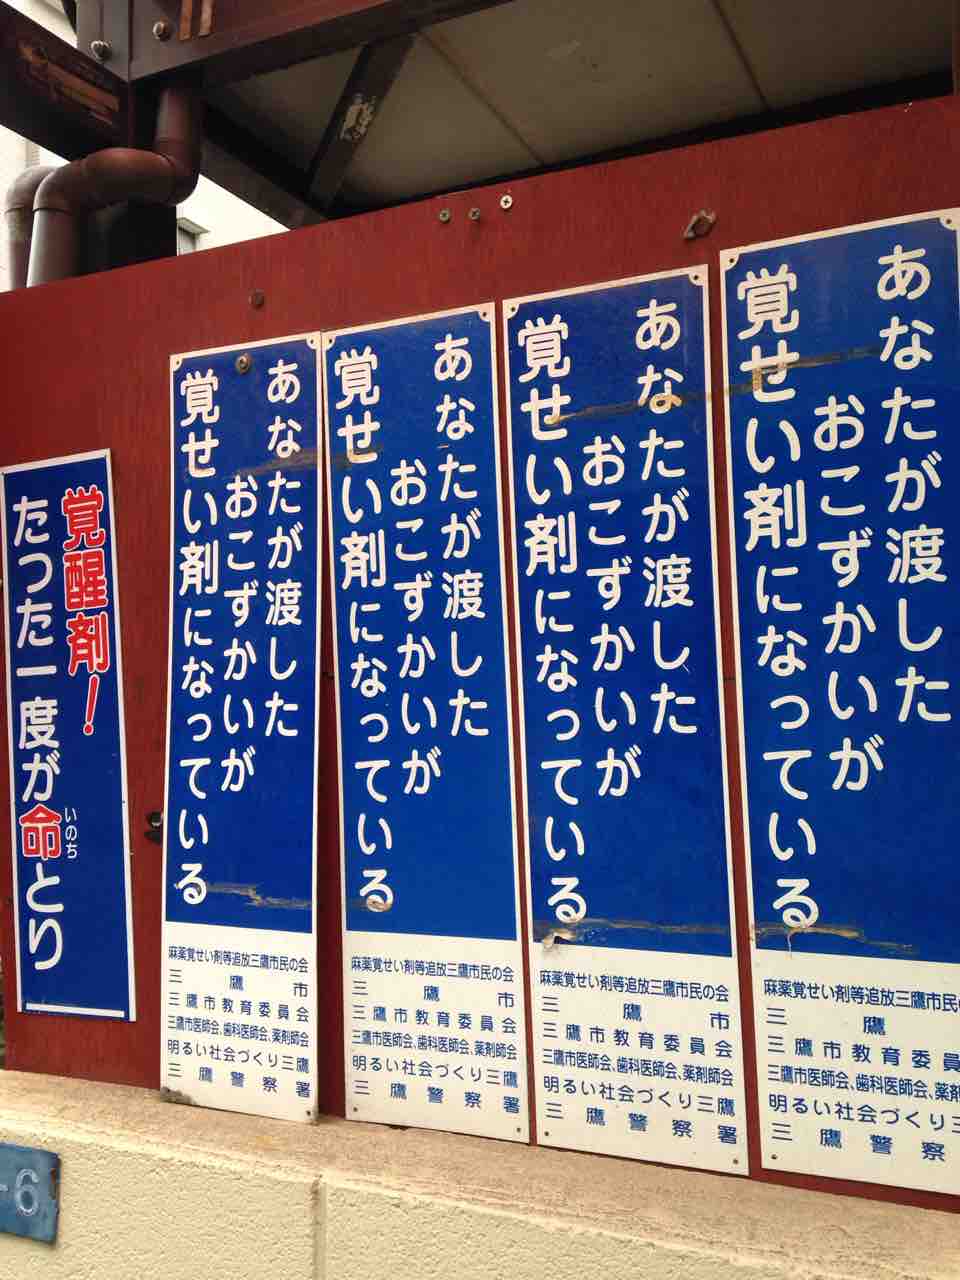 覚醒剤！
いのち
たった一度が命とり
あなたが渡した
おこずかいが
覚せい剤になっている
麻薬覚せい剤等追放三鷹市民の会
三鷹市
三鷹市教育委員会
三鷹市医師会、歯科医師会、薬剤師会
明るい社会づくり三鷹
三鷹警察署
あなたが渡した
おこずかいが
覚せい剤になっている
麻薬覚せい剤等追放三鷹市民の会
三鷹市
三鷹市教育委員会
三鷹市医師会、歯科医師会、薬剤師会
明るい社会づくり三鷹
三鷹警察署
あなたが渡した
おこずかいが
覚せい剤になっている
麻薬覚せい剤等追放三鷹市民の会
三鷹市
三鷹市教育委員会
三鷹市医師会、歯科医師会、薬剤師会
明るい社会づくり三鷹
三鷹警察署
あなたが渡した
おこずかいが
覚せい剤になっている
麻薬覚せい剤等追放三鷹市民
三鷹
三鷹市教育委員
三鷹市医師会、歯科医師会、薬剤
明るい社会づくり三
三鷹警察
-6